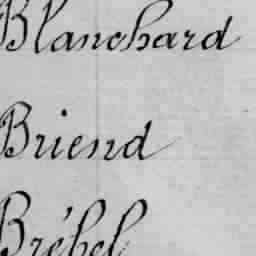 Blanchard
Briend
Brébel